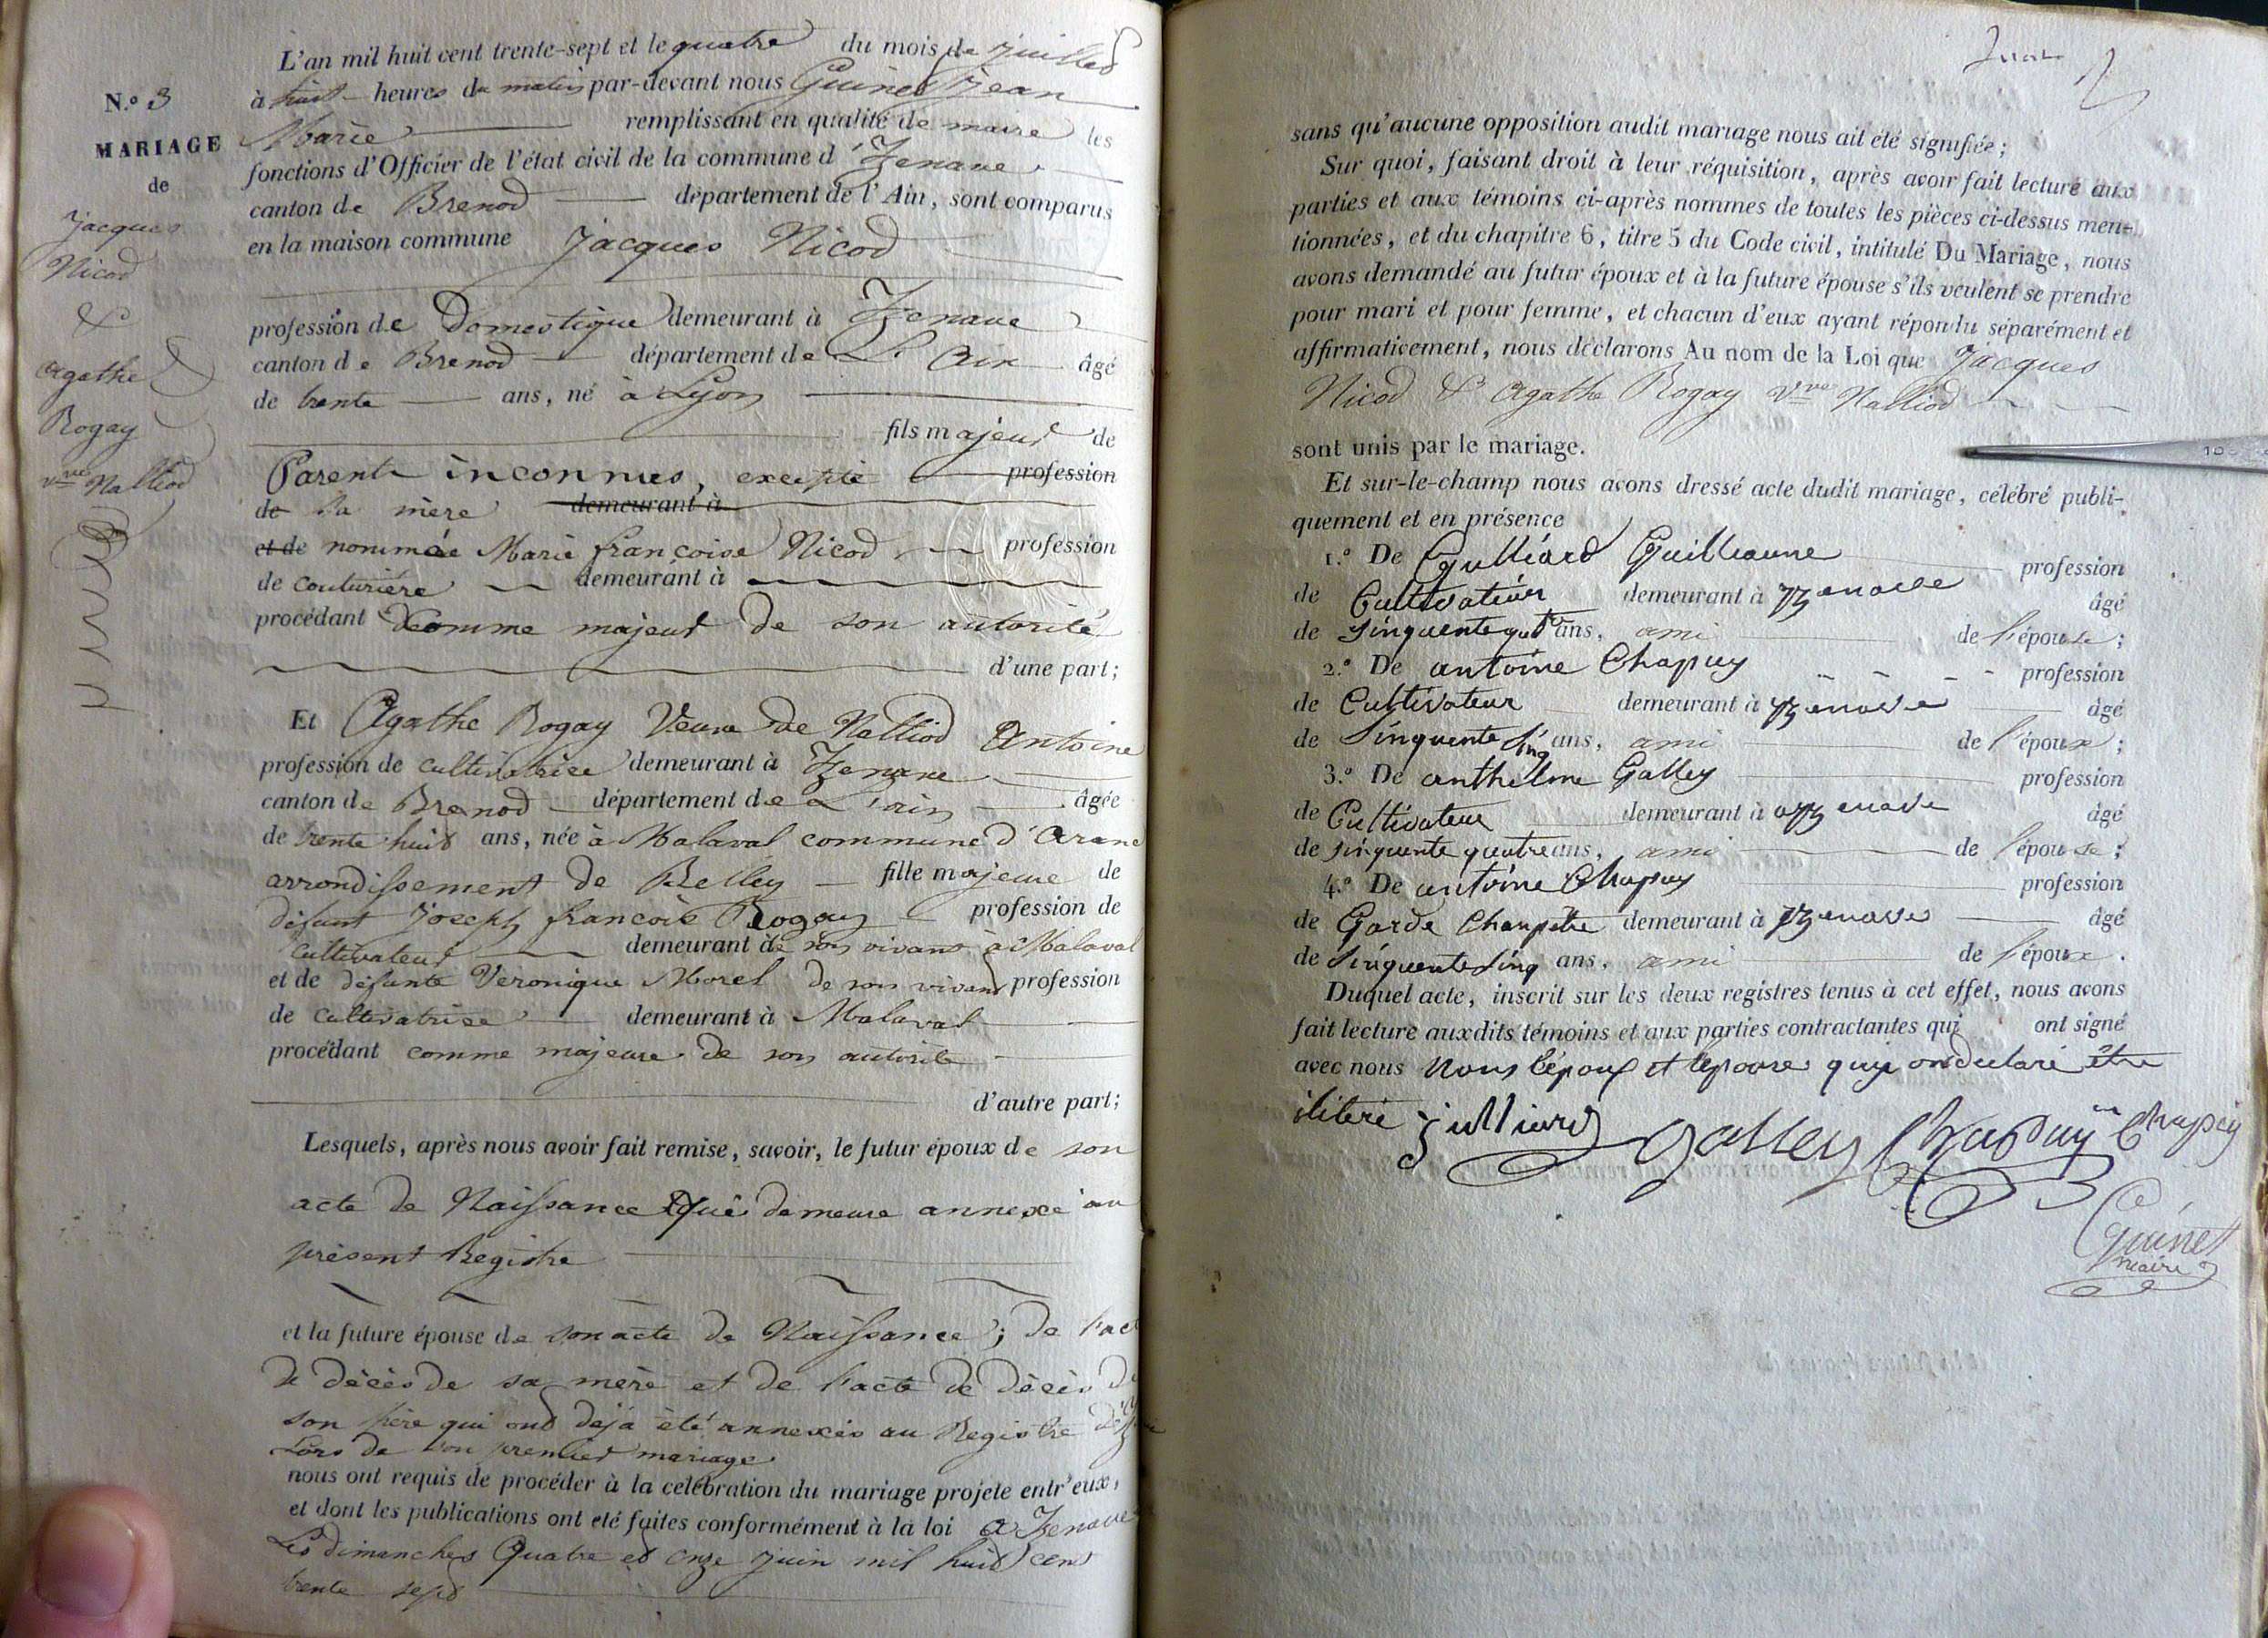 L'an mil huit cent trente-sept et le quatre du mois de juillet
à huit heures du matin par-devant nous Guinet Jean
Marie remplissant en qualité de maire les
fonctions d'Officier de l'état civil de la commune d'Izenave
canton de Brenod département de l'Ain, sont comparus
en la maison commune Jacques Nicod
profession de Domestique demeurant à Izenave
canton de Brenod département de L'Ain âgé
de trente ans, né à Lyon
fils majeur de
Parents inconnus, excepté profession
de sa mère demeurant à
et de nommée Marie françoise Nicod profession
de couturière demeurant à
procédant comme majeur de son autorité
d'une part;
Et Agathe Rogay Veuve de Nalliod Antoine
profession de cultivatrice demeurant à Izenave
canton de Brenod département de L'ain âgée
de trente huit ans, née à Malaval commune d'Aranc
arrondissement de Belley fille majeure de
défunt Joseph françois Rogay profession de
cultivateur demeurant de son vivant à Malaval
et de défunte Veronique Morel de son vivant profession
de cultivatrice demeurant à Malaval
procédant comme majeure de son autorité
d'autre part;
Lesquels, après nous avoir fait remise, savoir, le futur époux de son
acte de Naissance Qui demeure annexé au
présent Registre
et la future épouse de son acte de Naissance; de l'acte
de décès de sa mère et de l'acte de décès de
son père qui ont déjà été annexés au Registre
Lors de son premier mariage
nous ont requis de procéder à la célébration du mariage projeté entr'eux,
et dont les publications ont été faites conformément à la loi à Izenave
Les dimanches Quatre et onze juin mil huit cent
trente sept
N.º 3
MARIAGE
de
Jacques
Nicod
&
Agathe
Rogay
vve Nalliod
sans qu'aucune opposition audit mariage nous ait été signifiée;
Sur quoi, faisant droit à leur réquisition, après avoir fait lecture aux
parties et aux témoins ci-après nommés de toutes les pièces ci-dessus men-
tionnées, et du chapitre 6, titre 5 du Code civil, intitulé Du Mariage, nous
avons demandé au futur époux et à la future épouse s'ils veulent se prendre
pour mari et pour femme, et chacun d'eux ayant répondu séparément et
affirmativement, nous déclarons Au nom de la Loi que Jacques
Nicod & Agathe Rogay Vve Nalliod
sont unis par le mariage.
Et sur-le-champ nous avons dressé acte dudit mariage, célébré publi-
quement et en présence
1.º De Gulliard Guilleaume profession
de Cultivateur demeurant à yzenave âgé
de sinquente ans, ami de l'épouse;
2.º De antoine Chapuy profession
de Cultivateur demeurant à yzenave âgé
de Sinquente sinq ans, ami de l'époux;
3.º De anthelme Galley profession
de Cultivateur demeurant à yzenave âgé
de sinquente quatre ans, ami de l'épouse;
4.º De antoine Chapuy profession
de Garde Champetre demeurant à yzenave âgé
de Sinquente sinq ans, ami de l'époux.
Duquel acte, inscrit sur les deux registres tenus à cet effet, nous avons
fait lecture auxdits témoins et aux parties contractantes qui ont signé
avec nous Nons l'époux et l'epouse quy on declaré être
iliteré julliard Galley Chapuy Chapuy
Guinet
maire